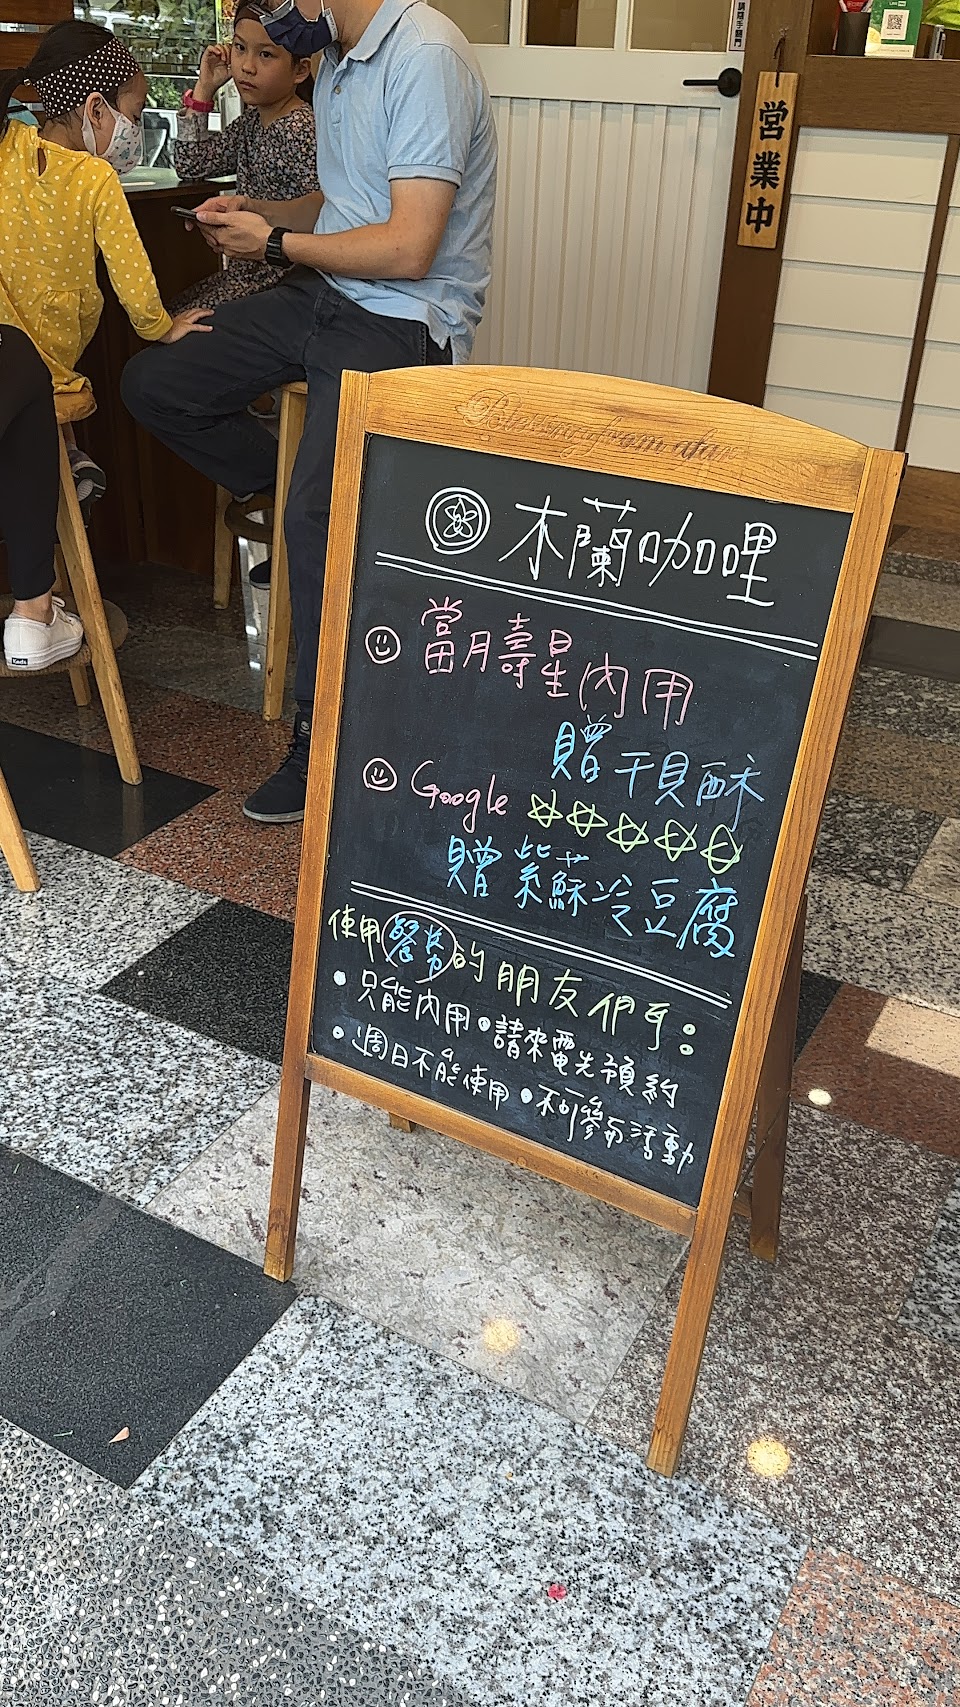 営業中
Blessing from afar
木蘭咖哩
當月壽星內用
贈干貝酥
Google ☆☆☆☆☆
贈紫蘇冷豆腐
使用餐券的朋友們ㄎ:
• 只能內用 • 請來電先預約
• 週日不能使用 • 不可參與活動